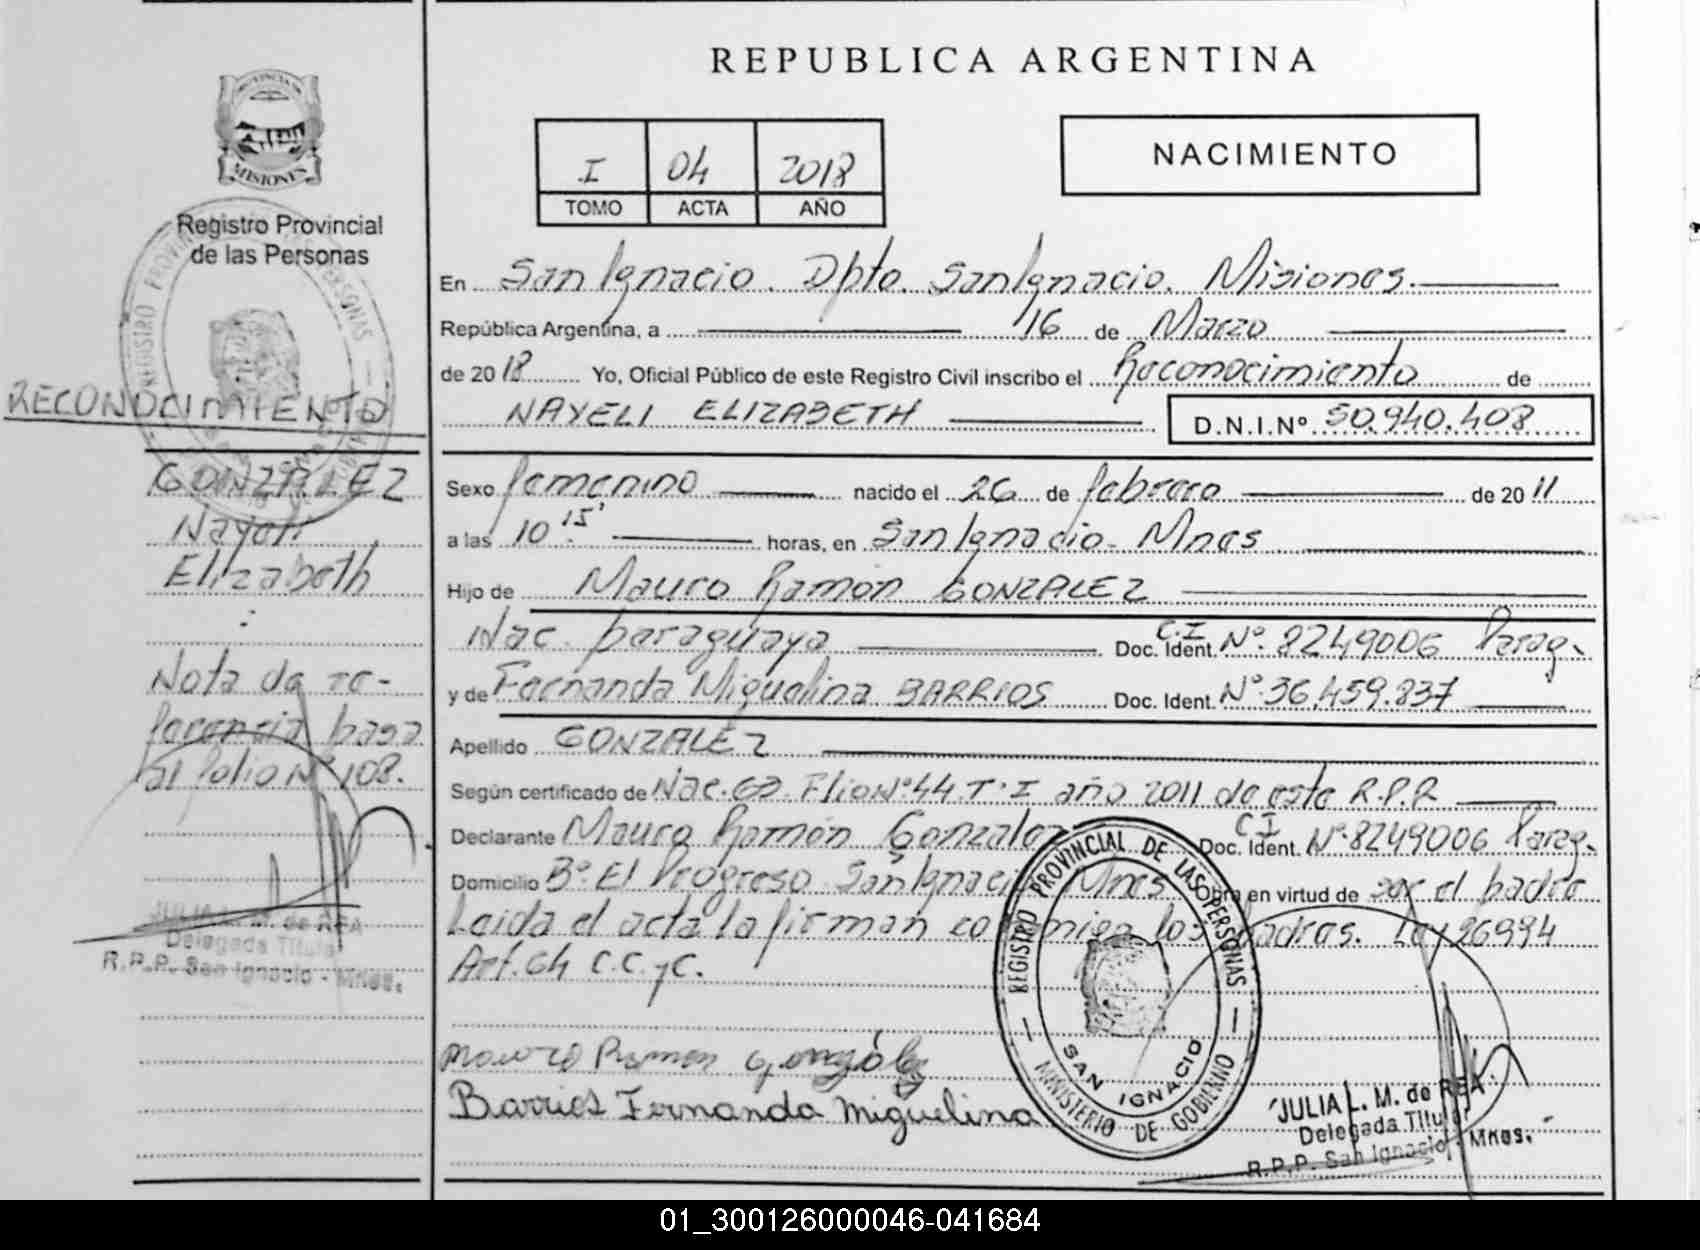 REPUBLICA ARGENTINA
PROVINCIA DE
MISIONES
Registro Provincial
de las Personas
I 04 2018
TOMO ACTA AÑO
NACIMIENTO
En San Ignacio. Dpto. San Ignacio. Misiones.
República Argentina, a 16 de Marzo
de 2018 Yo, Oficial Público de este Registro Civil inscribo el Reconocimiento de
NAYELI ELIZABETH D.N.I.Nº 50.940.408
Sexo femenino nacido el 26 de febrero de 2011
a las 10 15' horas, en San Ignacio. Mnes
Hijo de Mauro Ramón GONZALEZ
Nac. paraguaya Doc. Ident. C.I Nº 8249006 Parag.
y de Fernanda Miguelina BARRIOS Doc. Ident. Nº 36.459.837
Apellido GONZALEZ
Según certificado de Nac. 63 Flio Nº 44. T. I año 2011 de este R.P.R
Declarante Mauro Ramón Gonzalez Doc. Ident. C.I Nº 8249006 Parag.
Domicilio Bº El Progreso San Ignacio Mnes Obra en virtud de ser el padre
Leida el acta la firman conmigo los padres. Ley 26994
Art. 64 C.C. y C.
Mauro Ramon gonzález
Barrios Fernanda Miguelina
REGISTRO PROVINCIAL DE LAS PERSONAS
MINISTERIO DE GOBIERNO
SAN IGNACIO
JULIA L. M. de REA
Delegada Titular
R.P.P. San Ignacio - Mnes.
RECONOCIMIENTO
GONZALEZ
Nayeli
Elizabeth
:
Nota de re-
ferencia pasa
al folio Nº 108.
JULIA L. M. de REA
Delegada Titular
R.P.P. San Ignacio - Mnes.
01_300126000046-041684